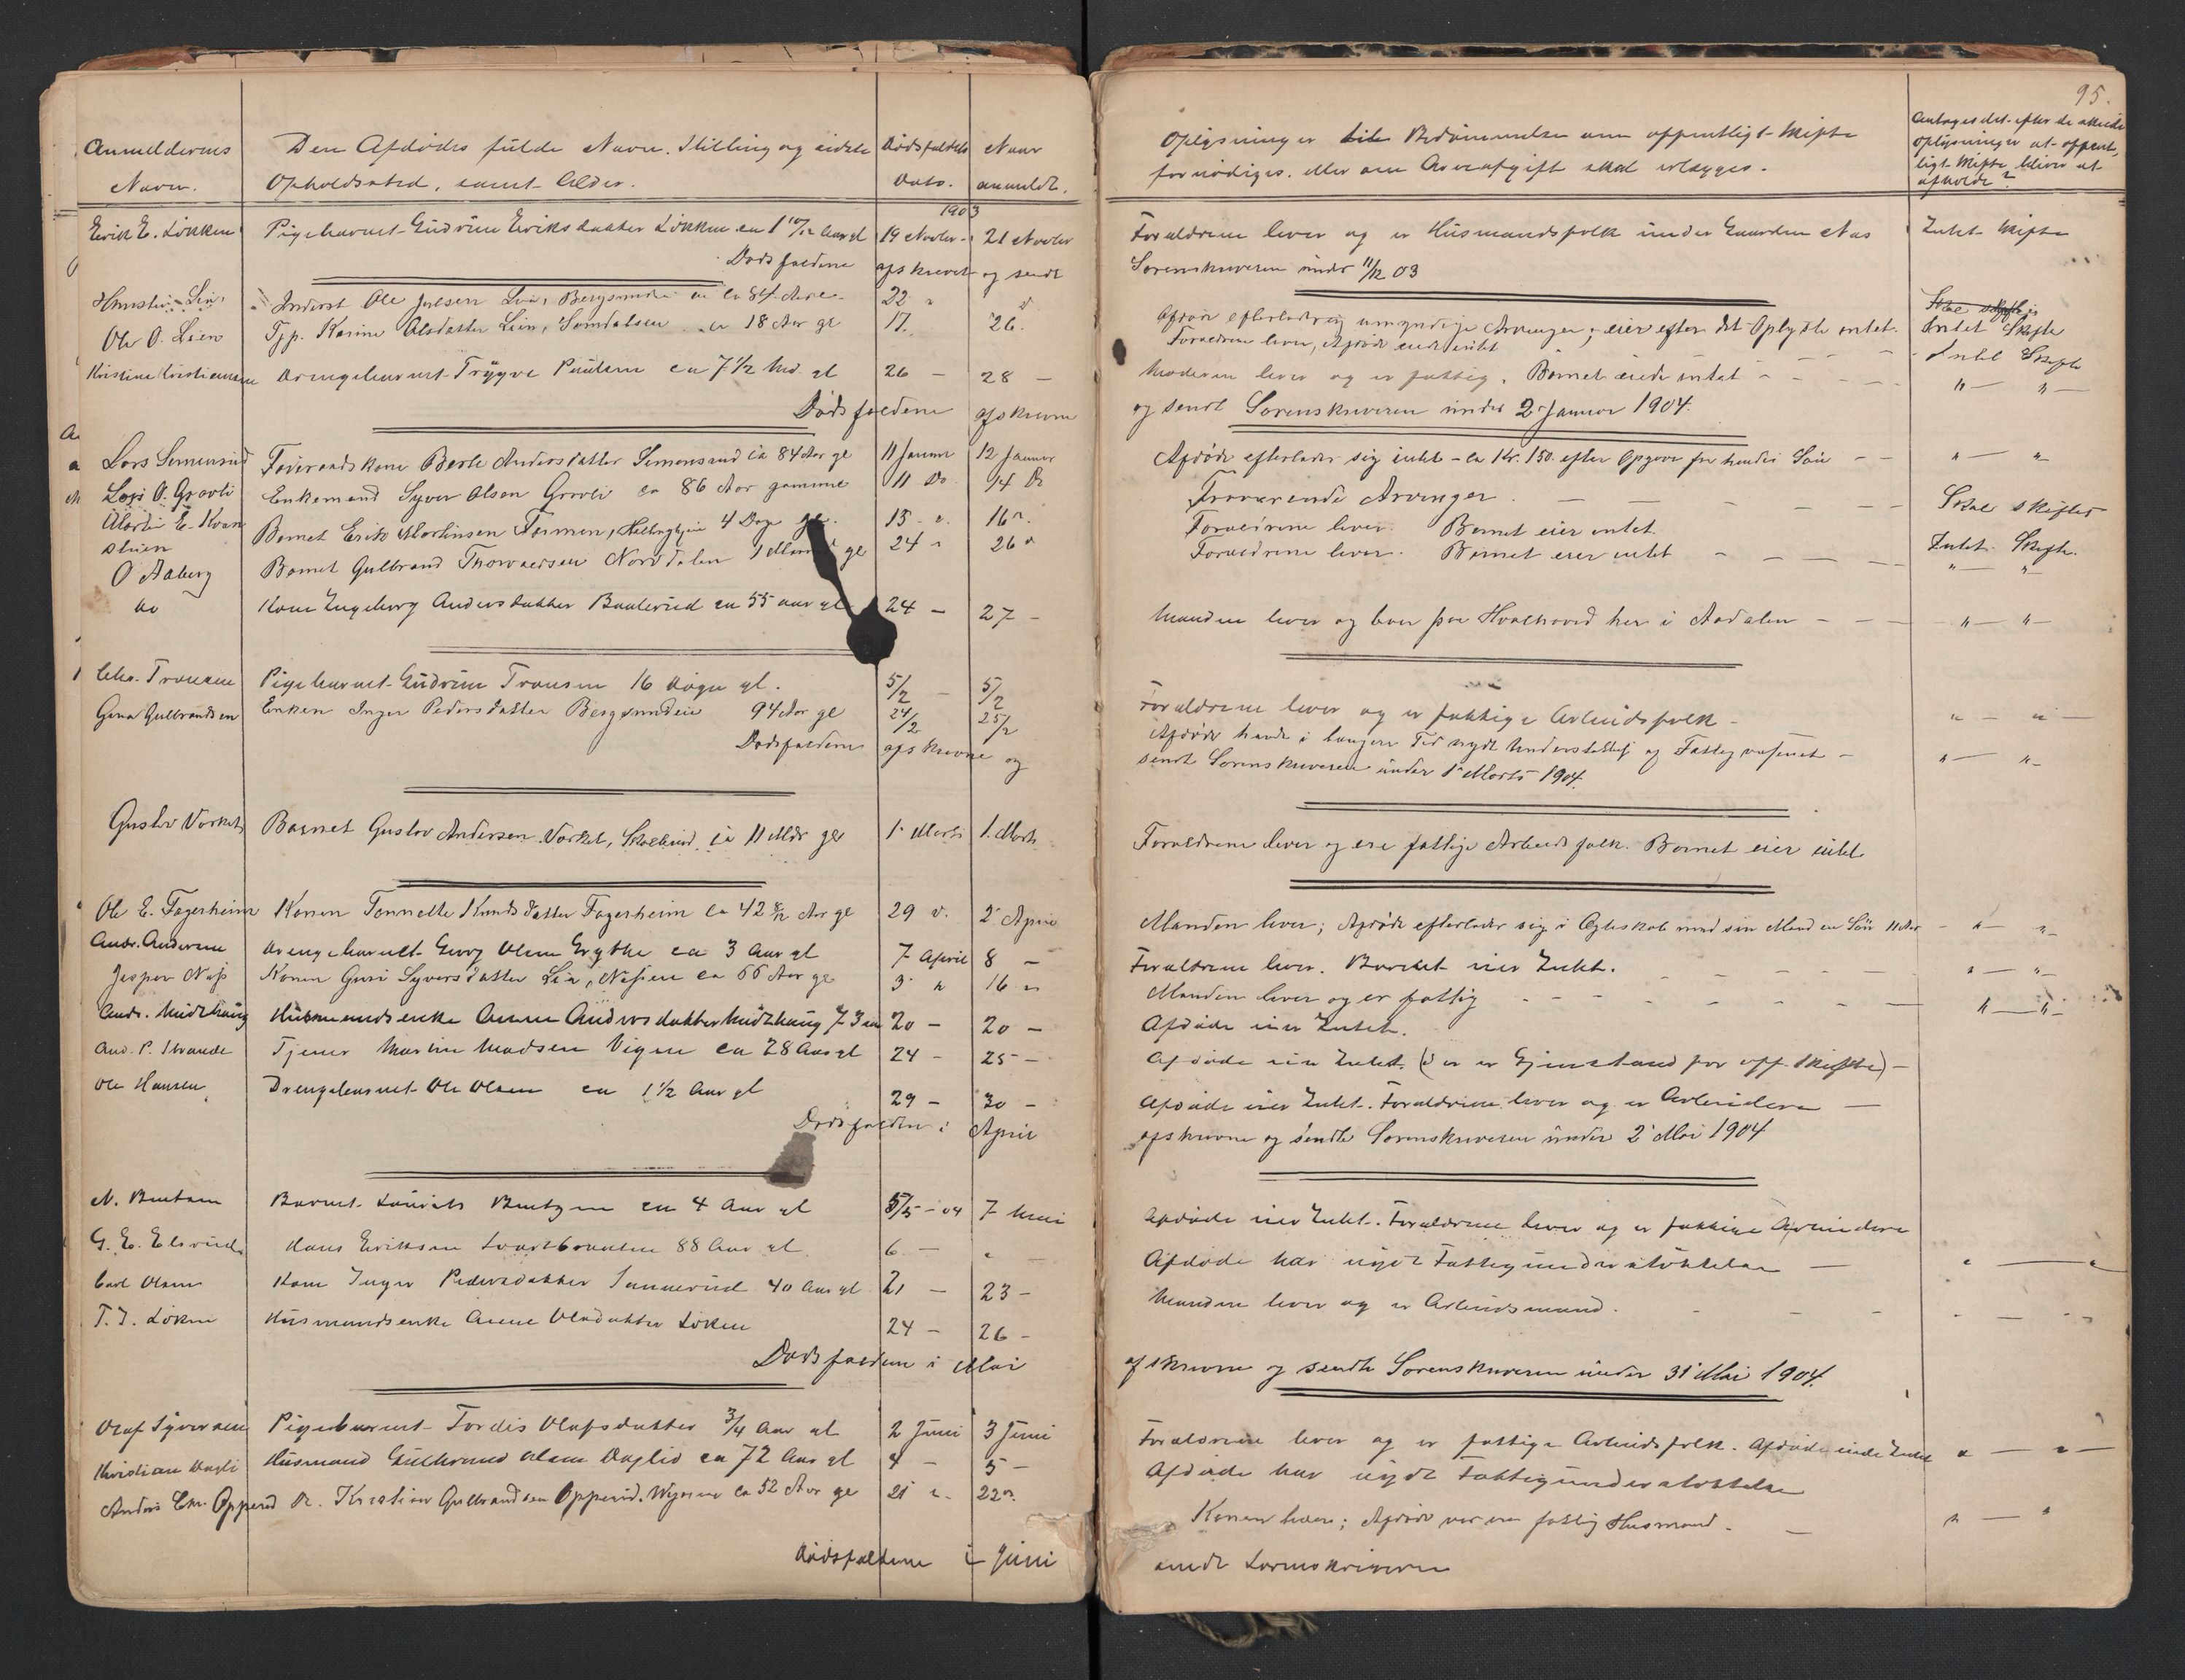 95.
Anmelderens Navn.
Den Afdødes fulde Navn. Stilling og sidste Opholdssted, samt Alder.
Dødsfaldets Dato.
Naar anmeldt.
Oplysninger til Bedømmelse om offentligt Skifte fornødiges. eller om Arveafgift skal erlægges.
Antages det efter de skeede oplysninger at offentligt Skifte bliver at afholde?
1903
Erik E. Løkken Pigebarnet Gudrun Eriksdatter Løkken ca 1 10/12 Aar gl 19 Novbr 21 Novbr Forældrene lever og er Husmandsfolk under Gaarden Næs Intet Skifte
Dødsfaldene afskrevet og sendt Sorenskriveren under 11/12 03
Lien Inderst Ole Lien, Bergsund ca 84 22 " Afdøde umyndige Arvinger; eier efter det Oplyste intet. Intet Skifte
Ole O. Lien Tjp. Karine Olsdatter Lien, Sømdalen ca 18 Aar gl 17. 26. Forældrene lever, Afdøde eiede intet Intet Skifte
Kristine Kristiansen Drengebarnet Trygve Paulsen ca 7 1/2 Md. gl 26 - 28 - Moderen lever og er fattig. Barnet eiede intet " — "
Dødsfaldene afskrevne og sendt Sorenskriveren under 2 Januar 1904.
Lars Semensrud Føderaadskone Berte Andersdatter Semensrud ca 84 Aar gl 11 Januar 12 Januar Afdøde efterlader sig intet - ca Kr. 150 efter Opgave fra hendes Søn " — "
Lars O. Gravli Enkemand Syver Olsen Gravli ca 86 Aar gammel 11 Do 14 Do Fraværende Arvinger. Skal skiftes
Martin E. Barnet Erik Martinsen 4 Dage gl. 15 " 16 " Forældrene lever. Barnet eier intet. Intet Skifte.
O Aaberg Barnet Gulbrand Thorvaldsen Norddalen 1 gl 24 " 26 " Forældrene lever. Barnet eier intet " — "
do Kone Ingeborg Andersdatter ca 55 aar gl 24 — 27 — Manden lever og bor paa Hvalhoved her i Aadalen " — "
Chr. Transen Pigebarnet Gudrun Transen 16 døgn gl. 5/2 — 5/2 Forældrene lever og er fattige Arbeidsfolk - " — "
Gina Gulbrandsen Enken Inger Pedersdatter Bergsund 94 Aar gl 24/2 25/2 Afdøde havde i længere Tid nydt Understøttelse af Fattigvæsenet - " — "
Dødsfaldene afskrevne og sendt Sorenskriveren under 1 Marts 1904.
Gustav Vorket Barnet Gustav Andersen Vorket, ca 11 Mdr gl 1 Marts 1. Marts Forældrene lever og ere fattige Arbeidsfolk. Barnet eier intet
Ole E. Fagerheim Konen Tonnette Knudsdatter Fagerheim ca 42 Aar gl 29 " 2 April Manden lever; Afdøde efterlader sig i Ægteskab med sin Mand en Søn 11 Aar " — "
Andr. Andersen Drengebarnet Georg Olsen ca 3 Aar gl 7 April 8 — Forældrene lever. Barnet eier Intet. " — "
Jesper Næss Konen Guri Syversdatter Lia, ca 66 Aar gl 3 " 16 " Manden lever og er fattig " — "
Andr. Midthaug Husmandsenke Anne Andersdatter Midthaug 73 20 — 20 — Afdøde eier Intet.
And. P. Strande Tjener Martin Madsen Vigen ca 28 Aar gl 24 — 25 — Afdøde eier Intet. (d er er Gjenstand for off. Skifte) -
Ole Hansen Drengebarnet Ole Olsen ca 1 1/2 Aar gl 29 — 30 — Afdøde eier Intet. Forældrene lever og er Arbeidere
Dødsfaldene i April afskrevne og sendte Sorenskriveren under 2 Mai 1904
N. Bentsen Barnet Bentzen ca 4 Aar gl 5/5 - 04 7 Mai Afdøde eier Intet. Forældrene lever og er fattige Arbeidere
G. E. Elsrud Hans Eriksen Svartbraaten 88 Aar gl. 6 — " Afdøde har nydt Fattigunderstøttelse " — "
Carl Olsen Kone Inger Pedersdatter 40 Aar gl 21 — 23 — Manden lever og er Arbeidsmand.
T. T. Løken Husmandsenke Anne Olsdatter Løken 24 — 26 —
Dødsfaldene i Mai afskrevne og sendte Sorenskriveren under 31 Mai 1904.
Olaf Syversen Pigebarnet Tordis Olafsdatter 3/4 Aar gl 2 Juni 3 Juni Forældrene lever og er fattige Arbeidsfolk. Afdøde eiede Intet " — "
Kristian Dagli Husmand Gulbrand Olsen Daglid ca 72 Aar gl 4 — 5 — Afdøde har nydt Fattigunderstøttelse
Anders Chr. Opperud Kristian Gulbrandsen Opperud. ca 52 Aar gl 21 " 22 " Konen lever; Afdøde var en fattig Husmand. " — "
Dødsfaldene i Juni sendt Sorenskriveren